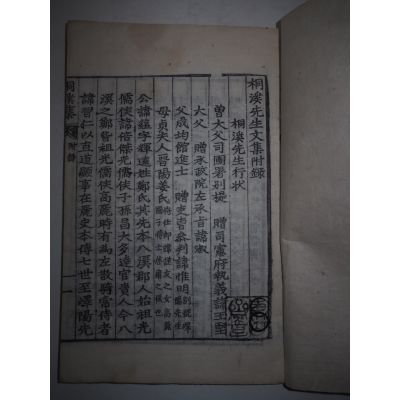 桐溪先生文集附録
桐溪先生行状
曾大父司圃署別提 贈司憲府執義諱玉堅
大父 贈承政院左承旨諱淑
父成均館進士 贈吏曹參判諱惟明
母貞夫人晉陽姜氏
公諱蘊字輝遠姓鄭氏其先本八溪郡人始祖光
儒俠諱倍傑光儒俠子孫昌大多達官貴人今八
溪之鄭皆祖光儒俠高麗時有爲左散騎常侍者
諱習仁以直道顯事在麗史本傳七世至嶧陽先
桐溪集 附録